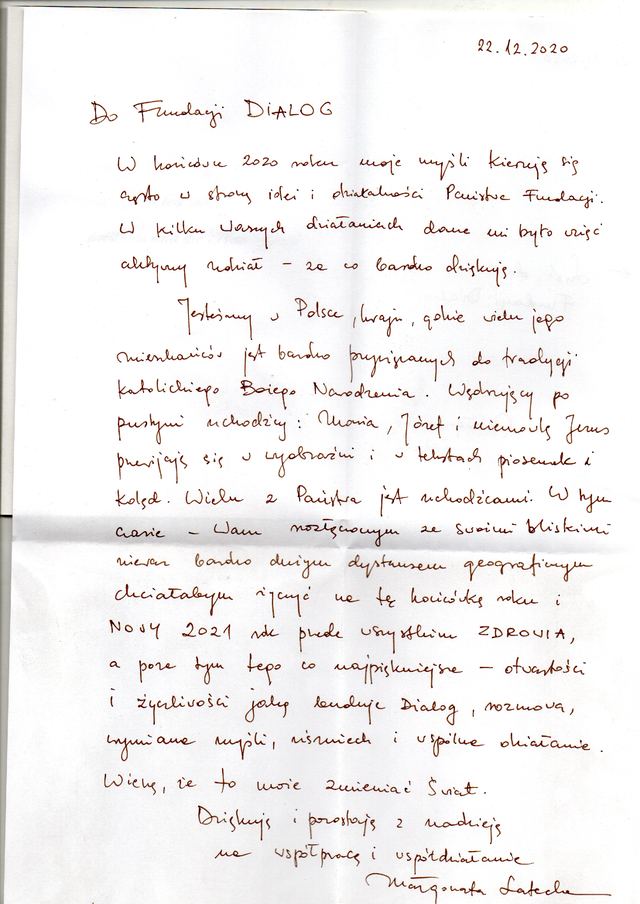 22.12.2020
Do Fundacji DIALOG
W końcówce 2020 roku moje myśli kierują się
często w stronę idei i działalności Państwa Fundacji.
W kilku Waszych działaniach dane mi było wziąć
aktywny udział – za co bardzo dziękuję.
Jesteśmy w Polsce, kraju, gdzie wielu jego
mieszkańców jest bardzo przywiązanych do tradycji
katolickiego Bożego Narodzenia. Wędrujący po
pustyni uchodźcy: Maria, Józef i niemowlę Jezus
pojawiają się w wyobraźni i w tekstach piosenek i
kolęd. Wielu z Państwa jest uchodźcami. W tym
czasie – Wam rozłączonym ze swoimi bliskimi
nieraz bardzo dużym dystansem geograficznym
chciałabym życzyć na tę końcówkę roku i
NOWY 2021 rok przede wszystkim ZDROWIA,
a poza tym tego co najpiękniejsze – otwartości
i życzliwości jaką buduje Dialog, rozmowa,
wymiana myśli, uśmiech i wspólne działanie.
Wierzę, że to może zmieniać Świat.
Dziękuję i pozostaję z nadzieją
na współpracę i współdziałanie
Małgorzata